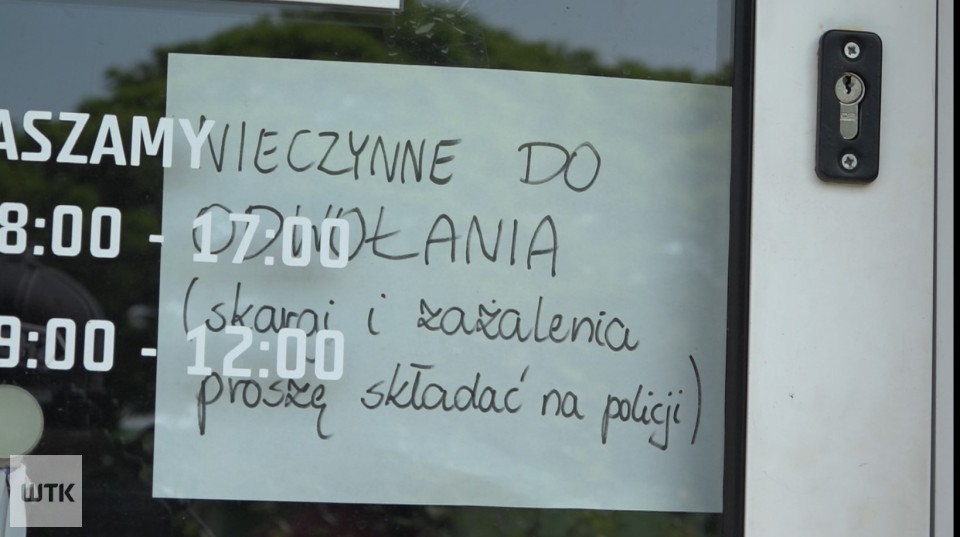 ASZAMY
8:00 - 17:00
9:00 - 12:00
NIECZYNNE DO
ODWOŁANIA
(skargi i zażalenia
proszę składać na policji)
WTK